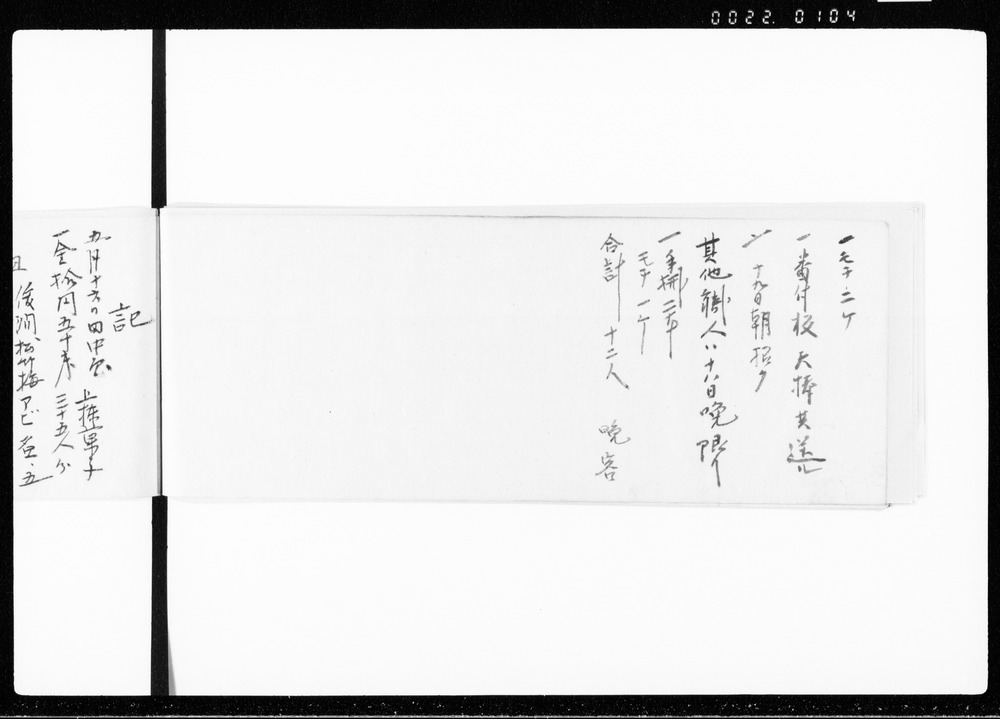 0022.0104
一モチ二ケ
一番付板天棒共送ル
〃十九日朝招ク
其他職人ハ十八日晩限
一手拭二本
モチ一ケ
合計十二人 晩客
記
九月十六日田中宅 上棟菓子
一金拾円五十銭 三十五人分
松竹梅